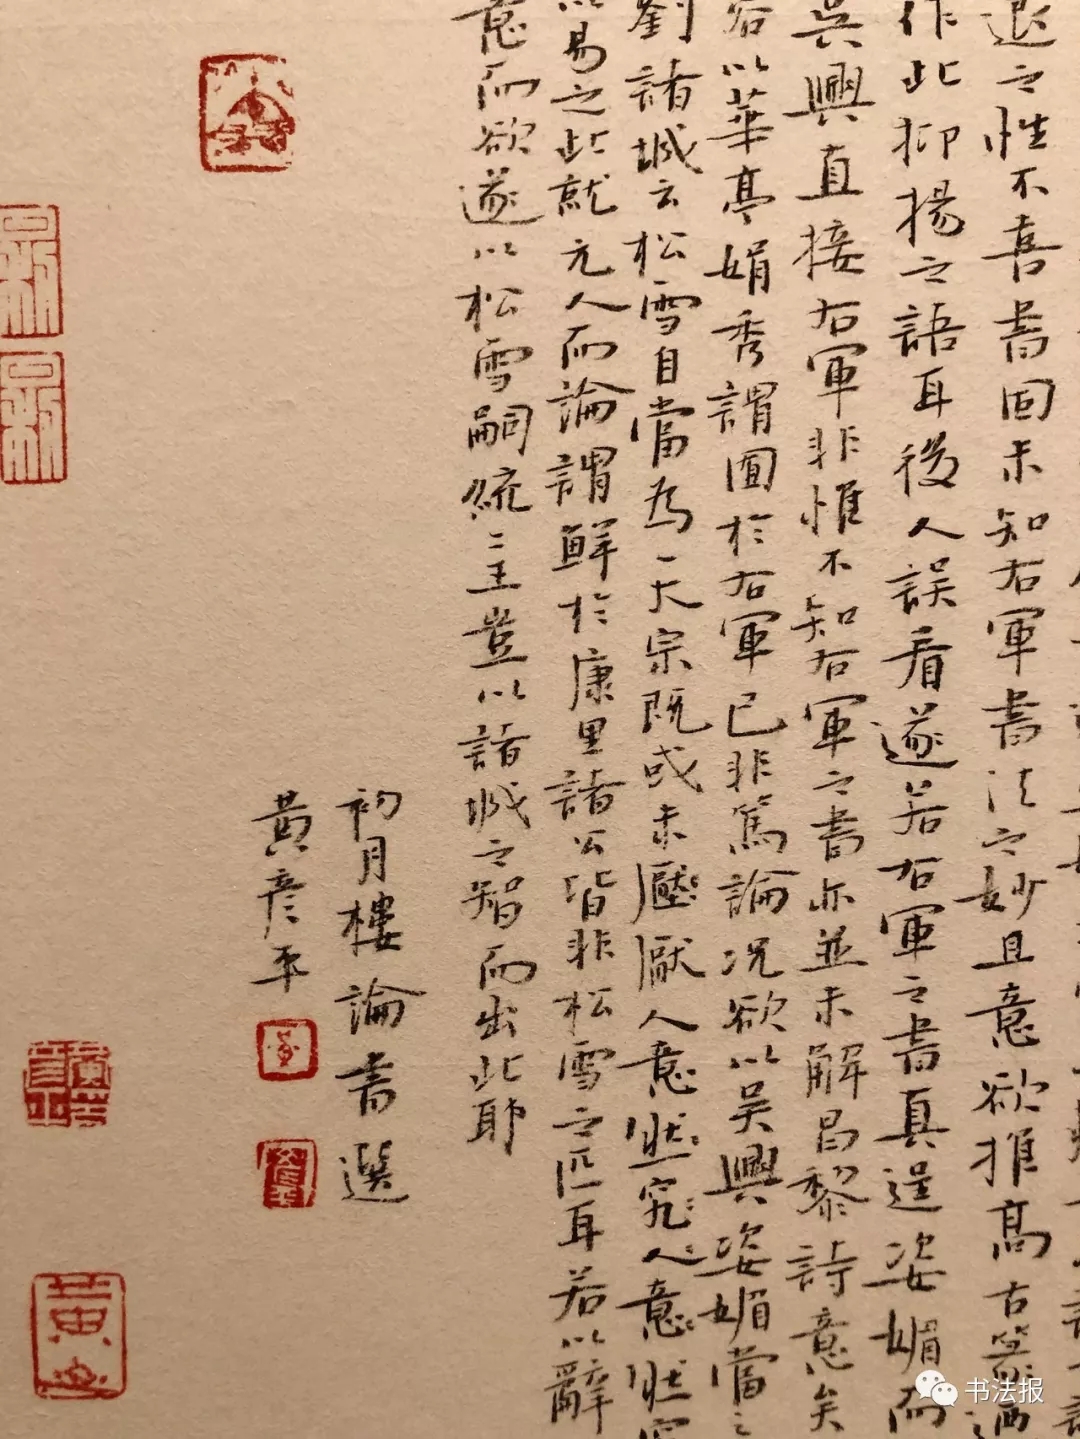 退之性不喜書固未知右軍書法之妙且意欲推高古篆
作此抑揚之語耳後人誤看遂若右軍之書真逞姿媚而
吳興直接右軍非惟不知右軍之書亦並未解昌黎詩意矣
若以華亭娟秀謂囿於右軍已非篤論况欲以吳興姿媚當之
劉諸城云松雪自當為一大宗既或未壓厭人意然究人意然究
以易之此就元人而論謂鮮於康里諸公皆非松雪之匹耳若以辭
意而欲遂以松雪嗣統二王豈以諸城之智而出此耶
初月樓論書選
黃彥平
書法报